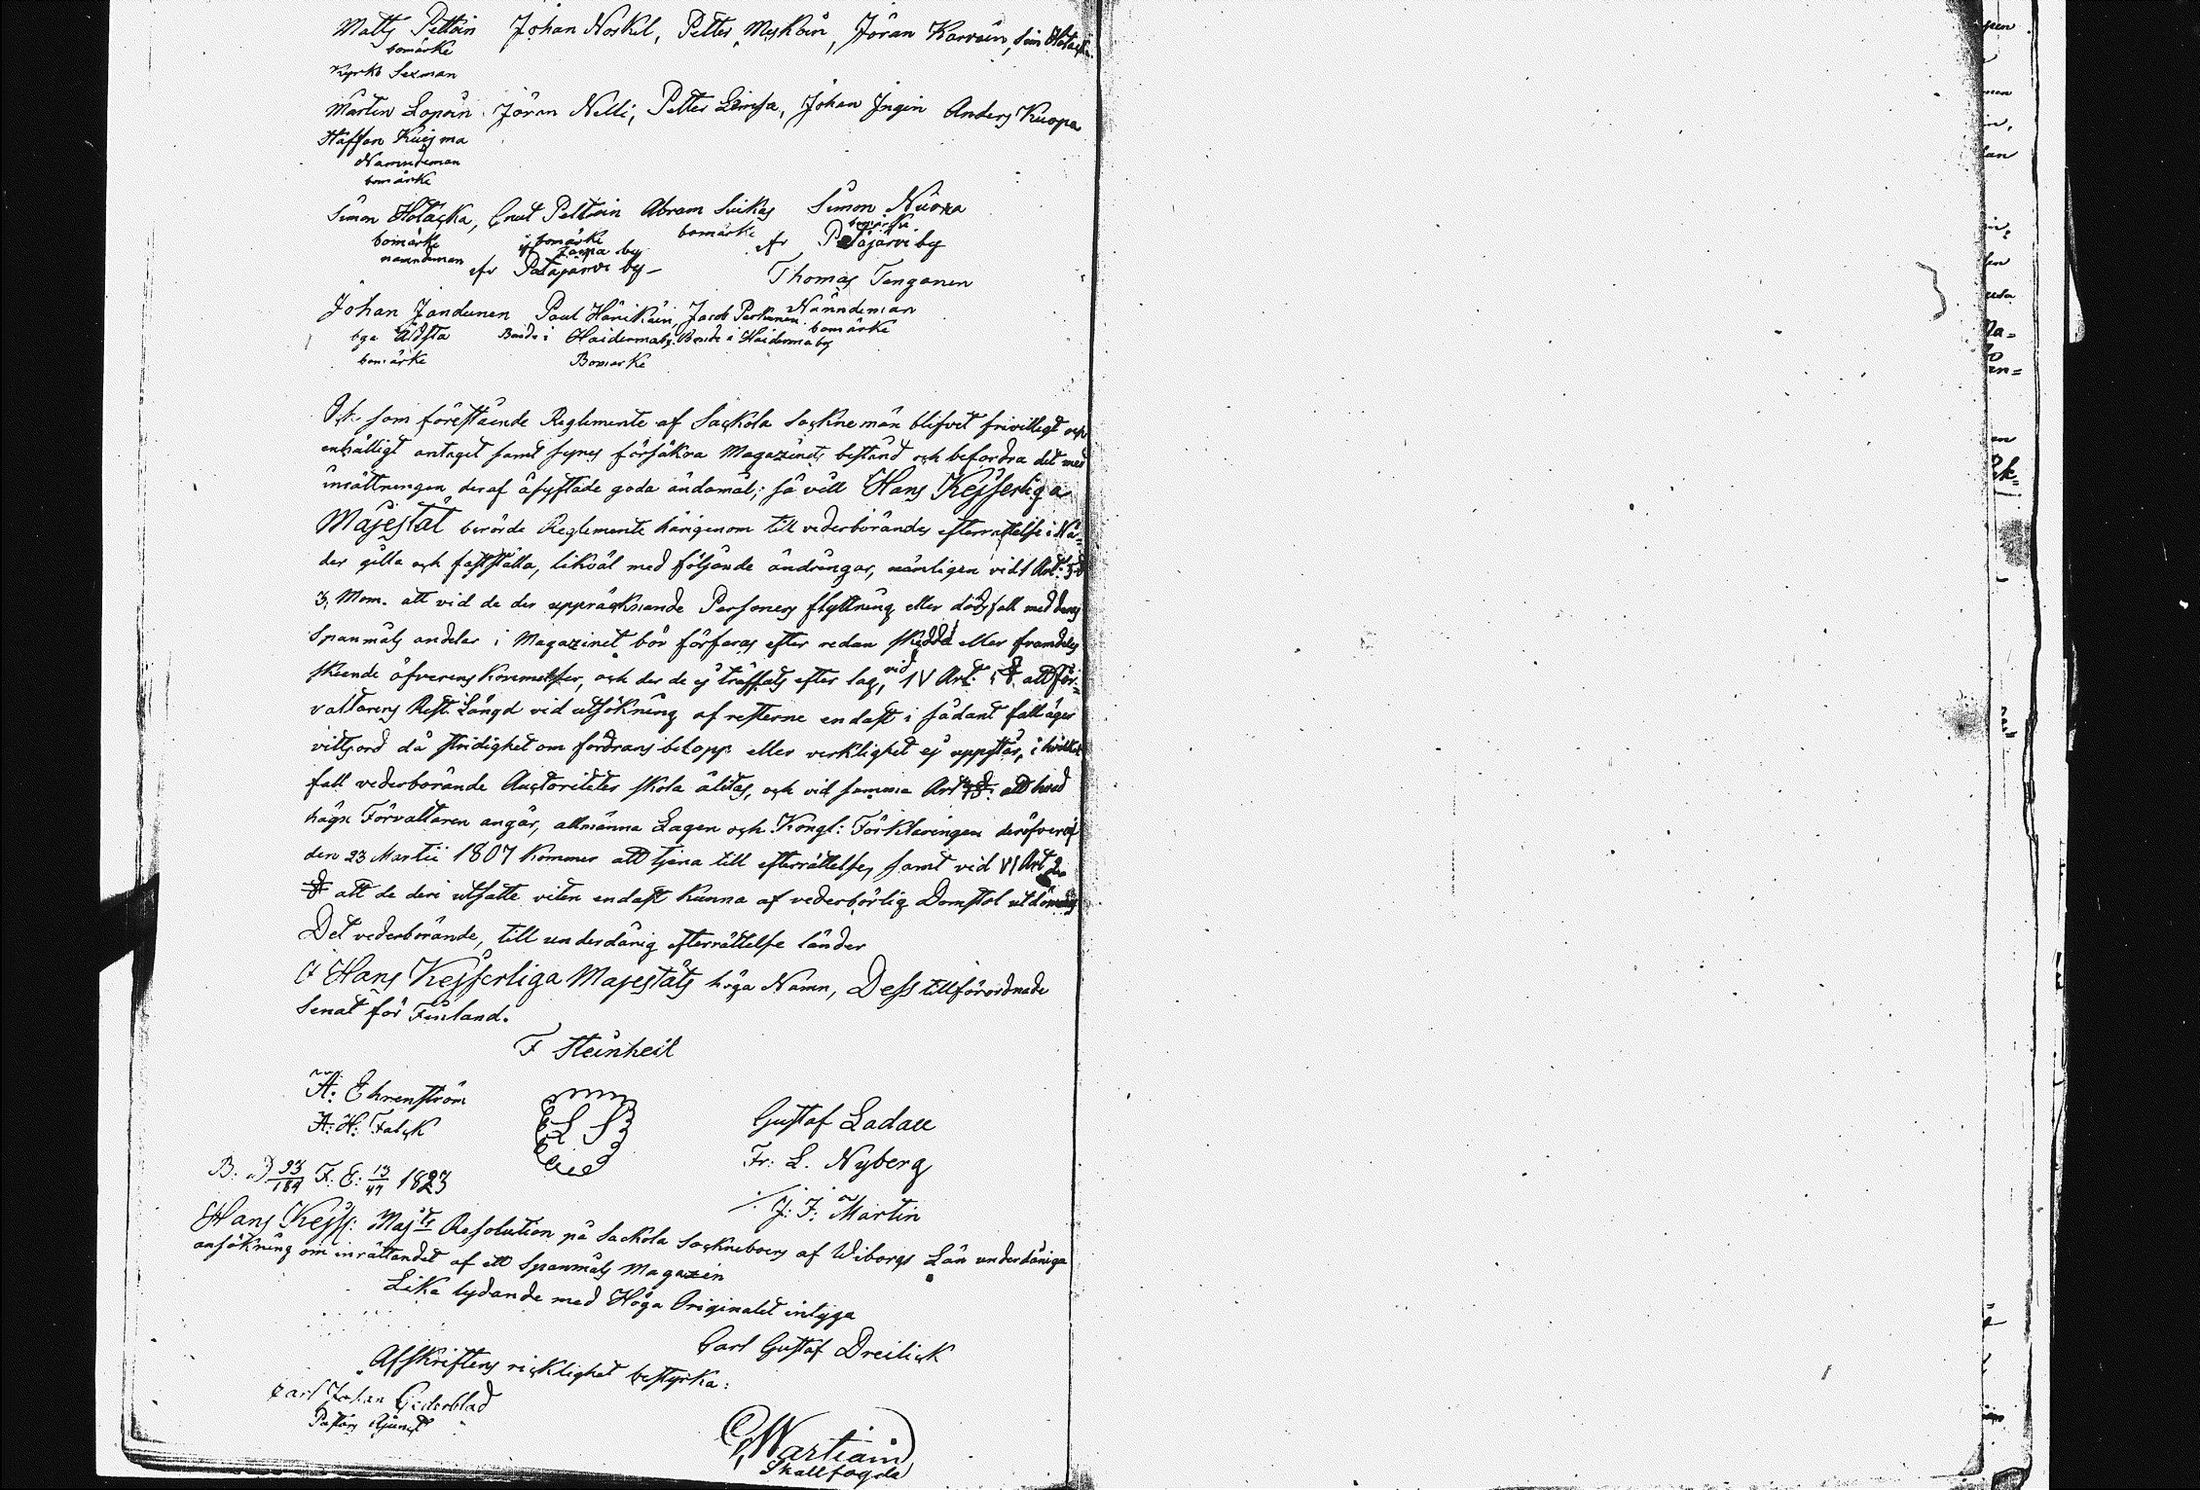 Matts Pettöin Johan Noskel, Petter Myskäin, Jöran Karvain, Sim Hotacka
bomärke
Kyrko Sexman
Mårten Lopoin Jöran Nelli, Petter Lämsa, Johan Ingin Anders Kuopa
Staffan Kuisma
Nämndeman
bomärke
Simon Hotacka, Cnut Peltoin Abram Suikas Simon Nuora
bomärke bomärke bomärke bomärke
nämndeman af Patajärvi by af Patajärvi by
Thomas Tenganen
Johan Jandunen Paul Hänikäin Jacob Parkunen Nämndeman
bya Äldsta Bonde i Haidermaby Bonde i Haidermaby bomärke
bomärke Bomärke
Och som förestående Reglemente af Sackola Sockne män blifvet frivilligt och
enhälligt antaget samt synes försäkra Magazinets bestånd och befordra det med
inrättningen deraf åsyftade goda ändamål; så vill Hans Kejserliga
Majestät berörde Reglemente härigenom till vederbörandes efterrättelse i Nå-
der gilla och fastställa, likväl med följande ändringar, nämligen vid 1 Art: 5 §
3, Mom. att vid de der uppräcknande Personers flyttning eller dödsfall med deras
Spanmåls andelar i Magazinet bör förfaras efter redan skedda eller framdeles
skeende öfverens kommelser, och der de ej träffats efter lag, vid IV Art: 5 §. att För-
valtarens Rest. Längd vid utsökning af resterne endast i sådant fall äger
vitsord då stridighet om fordrans belopp eller verklighet ej uppstår, i hvilket
fall vederbörande Auctoriteter skola älitas, och vid samma Art §. att hvad
hägn Förvaltaren angår, allmänna Lagen och Kongl: Förklaringen deröfver af
den 23 Martii 1807 kommer att tjena till efterrättelse, samt vid VI Art 2
§ att de deri utsatte viten endast kunna af vederbörlig Domstol utdömas
Det vederbörande, till underdånig efterrättelse länder
I Hans Kejserliga Majestäts höga Namn, Dess tillförordnade
Senat för Finland.
F Steinheil
A: Ehrenström
A: H: Falck
L S
Gustaf Ladau
Fr: L. Nyberg
J: F: Martin
B: D 93/184 F: E: 13/47 1823
Hans Kejs: Maj:ts Resolution på Sackola Socknebors af Wiborgs Län underdåniga
ansökning om inrättandet af ett Spanmåls Magazin
Lika lydande med Höga Originalet intyga
Carl Gustaf Dreilick
Afskriftens ricktighet bestyrka:
Carl Johan Cederblad
Pastors Adjunct
Wartiain
Skallfogde